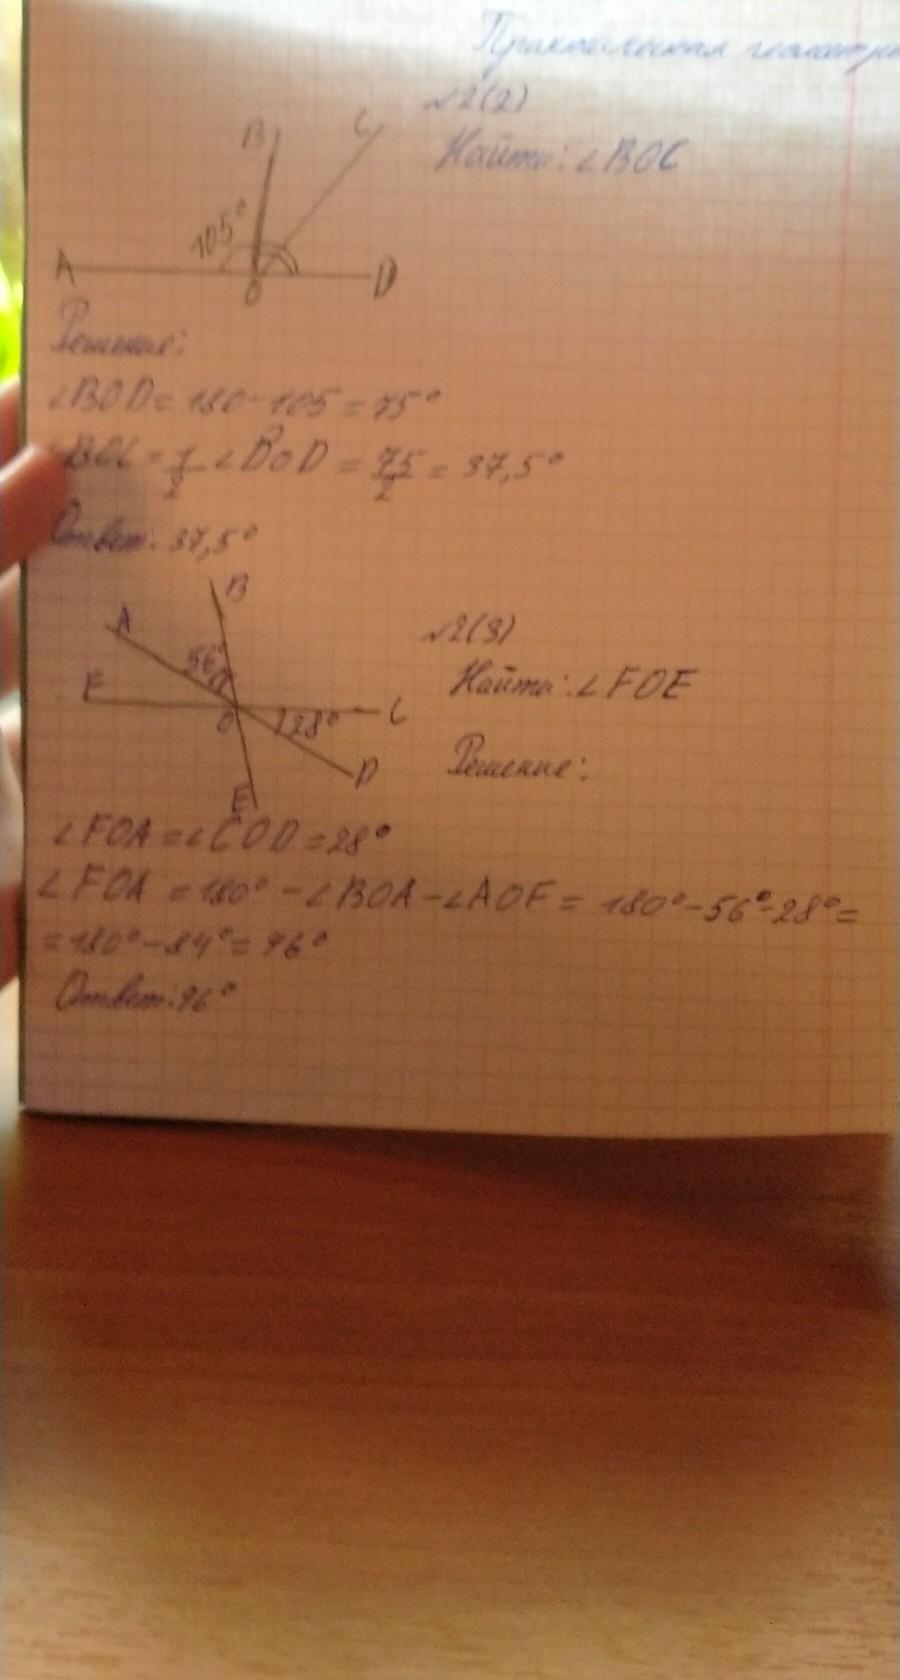 Практическая геометри
№2(2)
Найти: ∠BOC
B
C
105°
A
O
D
Решение:
∠BOD = 180 - 105 = 75°
∠BOC = 1/2 ∠BOD = 75/2 = 37,5°
Ответ: 37,5°
B
A
№2(3)
56°
Найти: ∠FOE
F
O
28°
C
Решение:
D
E
∠FOA = ∠COD = 28°
∠FOA = 180° - ∠BOA - ∠AOF = 180° - 56° - 28° =
= 180° - 84° = 96°
Ответ: 96°